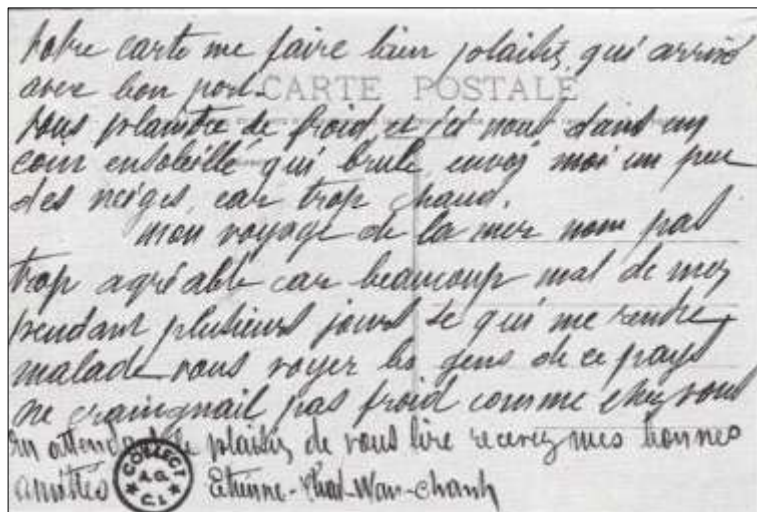 Votre carte me faire bien plaisir, qui arrivé
avec bon port.
CARTE POSTALE
vous plaintre de froid, et ici nous dans un
coin ensoleillé qui brule, envoj moi un peu
des neiges, car trop chaud.
mon voyage de la mer nom pas
trop agréable car beaucoup mal de mer
pendant plusieurs jours se qui me rendre
malade vous voyer les gens de ce pays
ne craingnait pas froid comme chez vous
En attendant le plaisir de vous lire recevez mes bonnes
amitiés
COLLECT
A.G.
C.I.
Etienne-
-Wan-Chanh